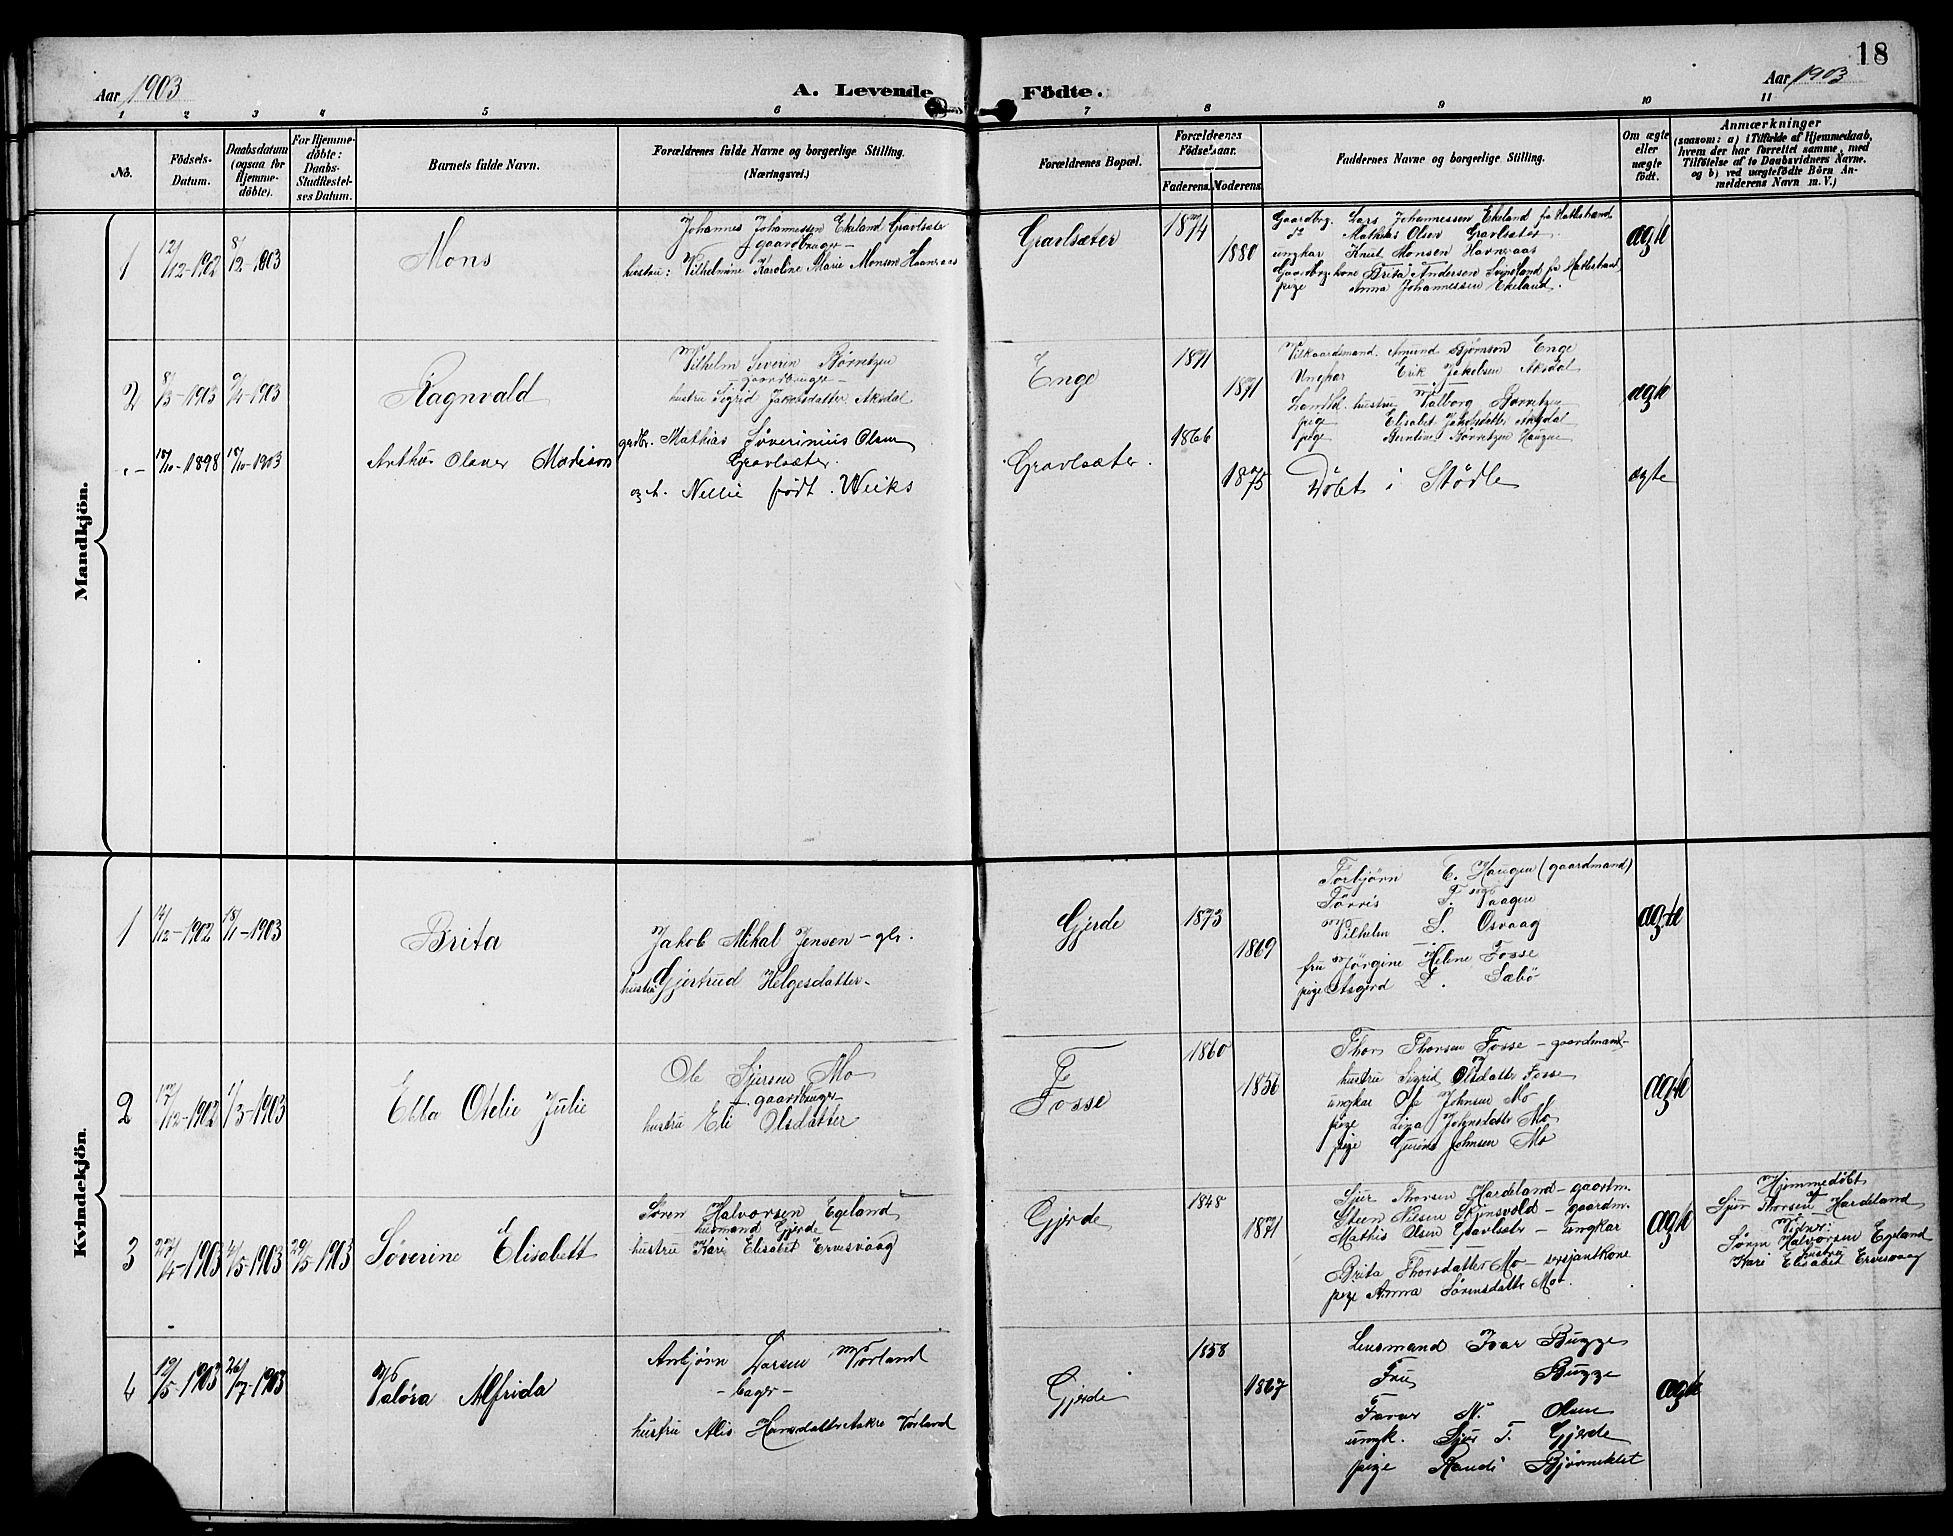 18
Aar 1903
A. Levende Födte.
Aar 1903
1 2 3 4 5 6 7 8 9 10 11
No.
Födsels-Datum.
Daabsdatum (ogsaa for Hjemmedöbte).
For Hjemmedöbte: Daabs-Stadfæstelses Datum.
Barnets fulde Navn.
Forældrenes fulde Navne og borgerlige Stilling. (Næringsvei.)
Forældrenes Bopæl.
Forældrenes Födselsaar.
Faderens. Moderens.
Faddernes Navne og borgerlige Stilling.
Om ægte eller uægte födt.
Anmærkninger
(saasom: a) i Tilfælde af Hjemmedaab, hvem der har forrettet samme, med Tilföielse af to Daabsvidners Navne, og b) ved uægtefödte Börn Anmelderens Navn m. V.)
Mandkjön.
1
12/12-1902
8/2-1903
Mons
Johannes Johannessen Ekeland Gravlsæter
- gaardbruger -
hustru: Vilhelmine Karoline Marie Monsen Havnaas
Gravlsæter
1874
1880
Gaardbrg. Lars Johannessen Ekeland fra Hatlestrand
do Mathias Olsen Gravlsæter
ungkar Knut Monsen Havnaas
Gaardbrg. kone Brita Andersen
pige Anna Johannessen Ekeland.
ægte
2
8/3-1903
9/4-1903
Ragnvald
Vilhelm Severin Børretzen
- gaardbruger -
hustru Sigrid Jakobsdatter Aksdal
Enge
1871
1871
Vilkaardsmand. Amund Bjørnson Enge
Ungkar Erik Jakobsen Aksdal
hustru Valborg Børretzen
pige Elisabet Jakobsdatter Aksdal
pige Berntine Børretzen Haugen
ægte
"-
18/10-1898
18/10-1903
Arthur Olaner Madison
gardbr. Mathias Søverinius Olsen
Gravlsæter.
og h. Nellie født Weiks
Gravlsæter.
1866
1875
Døbt i Stødle
ægte
Kvindekjön.
1
14/12-1902
18/1-1903
Brita
Jakob Mikal Jensen - gbr.
hustru Gjertrud Helgesdatter -
Gjerde
1873
1869
Torbjørn C. Haugen (gaardmand)
Tørris T. Vaagen
Vilhelm S. Osvaag
fru Jørgine Helene Fosse
pige Asgerd L. Sæbø
ægte
2
17/12-1902
1/3-1903
Ella Otelie Julie
Ole Sjursen Mo
- gaardbruger -
hustru Eli Olsdatter
Fosse
1860
1856
Thor Thorsen Fosse - gaardmand -
hustru Sigrid Olsdatter Fosse
ungkar Ole Johnsen Mo
pige Lina Johnsdatter Mo
pige Gurine Johnsen Mo
ægte
3
27/4-1903
4/5-1903
29/5-1903
Søverine Elisabett
Søren Halvorsen Egeland
husmand Gjerde
hustru Kari Elisabet Ervesvaag
Gjerde
1848
1871
Sjur Thorsen Hardeland - gaardm.
Steen Nilsen Skjensvold - gaardm.
Mathis Olsen Gravlsæter - ungkar
Brita Thorsdatter Mo - sersjantkone
pige Anna Sørensdatter Mo.
ægte
Hjemmedøbt
Sjur Thorsen Hardeland
Vidner:
Søren Halvorsen Egeland
hustru
Kari Elisabet Ervesvaag
4
19/5-1903
26/7-1903
Valøra Alfrida
Anbjørn Larsen Vorland
- bager -
hustru Alis Hansdatter Aakre Vorland
Gjerde
1858
1867
Lensmand Ivar Bugge
Fru Bugge
N. Olsen
ungk. Sjur T. Gjerde
pige Randi Bjørneklet
ægte